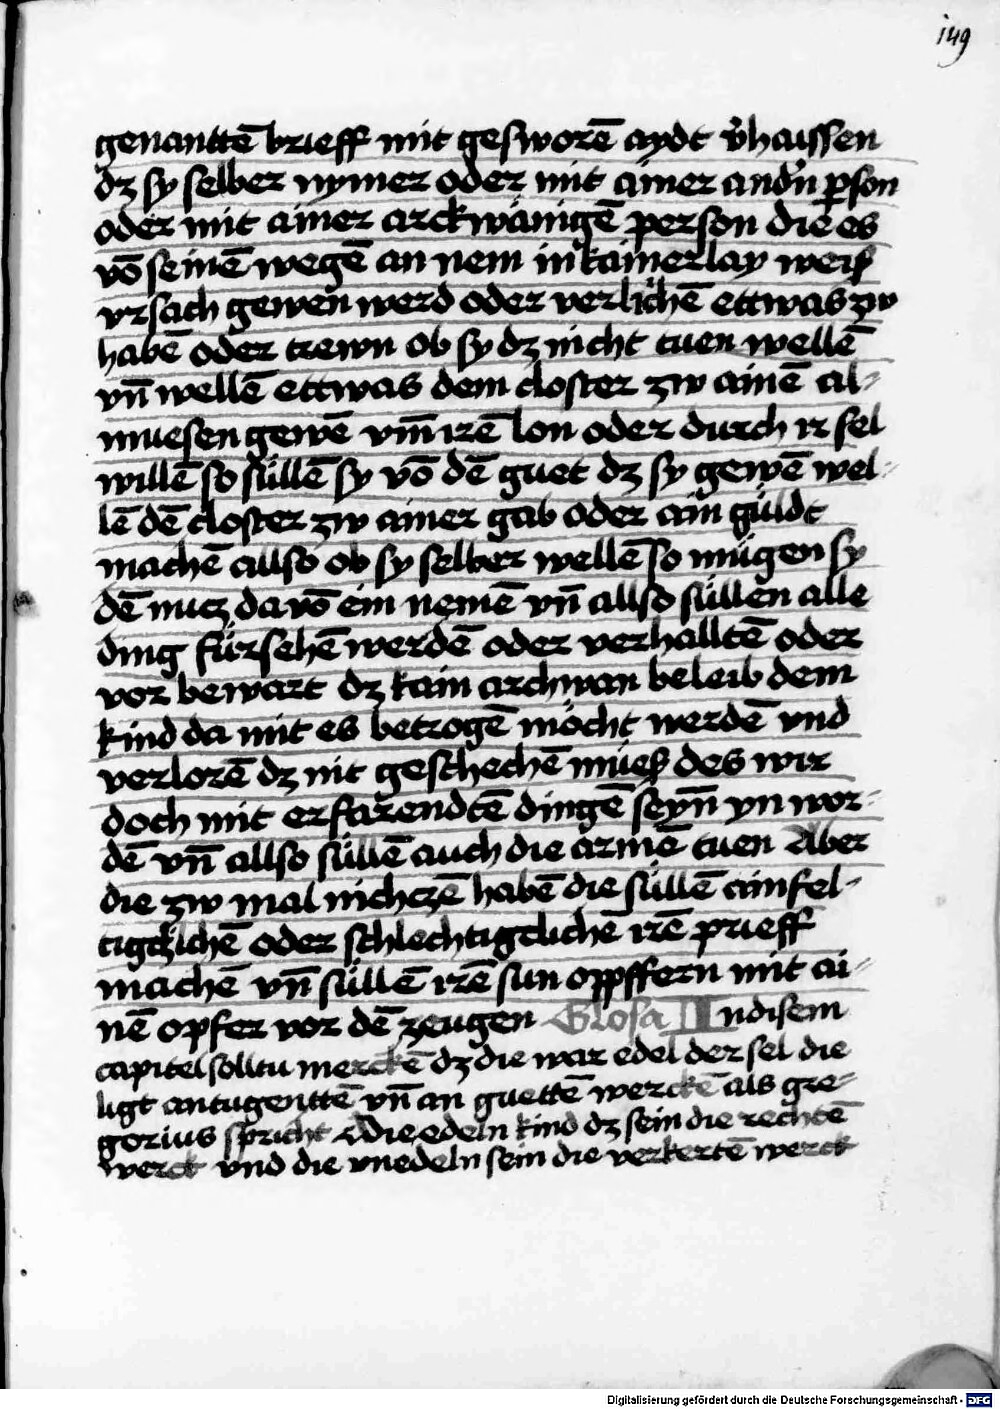 149
genanttē brieff mit gesworē aydt v̄haissen
dz sy selber nymer oder mit ainer andn̄ pson
oder mit ainer arckwänigē person die es
vō seinē wegē an nem in kainerlay weiß
vrsach gewen werd oder verlichē ettwas zw
habē oder trewn ob sy dz nicht tuen wellē
vn̄ wellē ettwas dem closter zw ainē al-
muesen gewē vm̄ irē lon oder durch ir sel
willē so süllē sy vō dē guet dz sy gewē wel-
lē dē closter zw ainer gab oder ain güldt
machē allso ob sy selber wellē so mügen sy
dē nucz da vō ein nemē vn̄ allso süllen alle
ding fürsehē werdē oder verhalltē oder
vor bewart dz kain archwan beleib dem
kind da mit es betrogē möcht werdē vnd
verlorē dz nit geschechē müeß des wir
doch mit erfarendtē dingē seyn̄ yn wor-
dē vn̄ allso süllē auch die armē tuen Aber
die zw mal nichczē habē die süllē ainfel-
tigcklichē oder schlechtigclichē irē prieff
machē vn̄ süllē irē sun oppffern mit ai-
nē opfer vor dē zeugen Glosa In disem
capitel solltu merckē dz die war edel der sel die
ligt an tugenttē vn̄ an guettē werckē als gre-
gorius spricht Die edeln kind dz sein die rechtē
werck vnd die vnedeln sein die verkertē werck
Digitalisierung gefördert durch die Deutsche Forschungsgemeinschaft - DFG